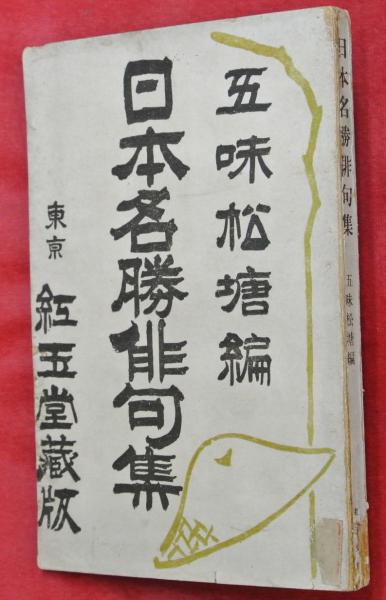 五味松塘編
日本名勝俳句集
東京 紅玉堂藏版
日本名勝俳句集 五味松塘編